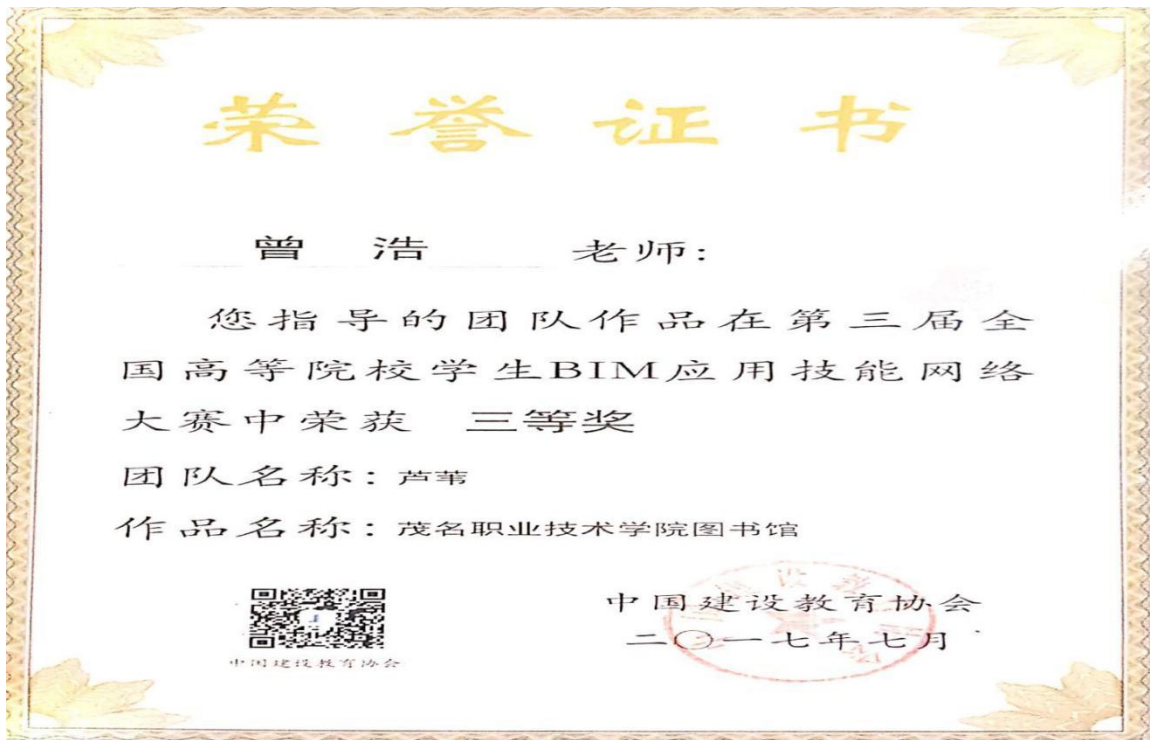 荣誉证书
曾 浩 老师:
您指导的团队作品在第三届全
国高等院校学生BIM应用技能网络
大赛中荣获 三等奖
团队名称: 芦苇
作品名称: 茂名职业技术学院图书馆
中国建设教育协会
二〇一七年七月
中国建设教育协会